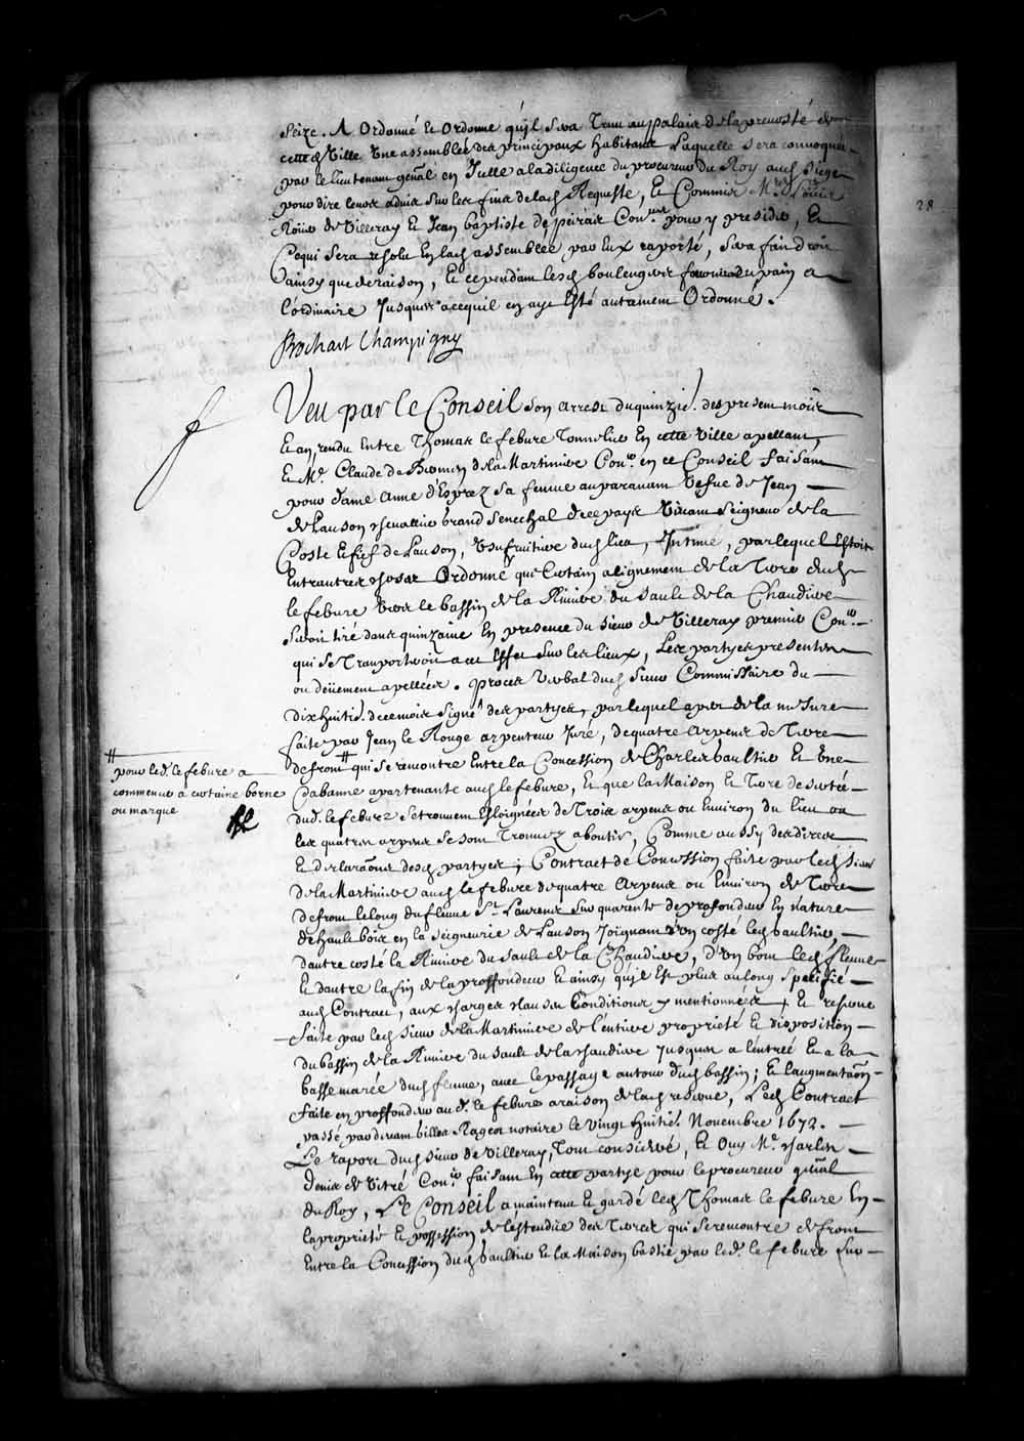 seize. A Ordonné et Ordonne qu'il sera Tenu au palais de la prevosté de
cette d. Ville Une assemblée des principaux habitans Laquelle sera convoquée
par le lieutenant gñal en Icelle a la diligence du procureur du Roy aud. siege
pour dire leurs aduis sur les fins de lad. Requeste, Et Commis Me Louis
Roüer de Villeray Et Jean baptiste de peiras Coners pour y presider, Et
Ce qui sera resolu En lad. assemblée par Eux raporté, sera fait droit
ainsy que de raison, Et cependant lesd. boulengers fourniront du pain a
l'ordinaire Jusques a ce quil en aye Esté autrement Ordonné.
Bochart Champigny
28
Veu par le Conseil son arrest du quinzie. des present mois
Et an rendu Entre Thomas le febure Tonnelier En cette Ville apellant,
Et Me. Claude de Bermen de la Martiniere Coner. en ce Conseil faisant
pour dame Anne d'Esprez sa femme auparauant Vefue de Jean
de Lauson cheuallier grand senechal de ce pays Viuant seigneur de la
Coste et fief de Lauson, Vsufruitiere dud. lieu, Intimé, par lequel Estoit
Entr'autres choses Ordonné que Certain alignement de la Terre dud.
le febure Vers le bassin de la Riuiere du sault de la Chaudiere
Seroit tiré dans quinzaine En presence du sieur de Villeray premier Coner.
qui se Tranporteroit a cet Effet sur les lieux, Les partyes presentes
ou deüement apellées. proces Verbal dud. sieur Commissaire du
dix huitie. de ce mois signé des partyes, par lequel apres de la mesure
faite par Jean le Rouge arpenteur Juré, de quatre arpens de Terre
de front # qui se rencontre Entre la Concession de Charles baultier et Une
Cabanne apartenante aud. le febure, Et que la Maison Et Terre desertée
dud. le febure se trouuent Esloignées de Trois arpens ou Enuiron du lieu ou
les quatres arpens se sont Trouuez aboutir, Comme aussy des dires
Et declaraons desd. partyes; Contract de Concession faite par led. sieur
de la Martiniere aud. le febure de quatre Arpens ou Enuiron de Terre
de front le long du fleuue St. Laurens sur quarente de profondeur En nature
de haults bois en la seigneurie de Lauson Joignant d'un costé led. baultier,
d'autre costé la Riuiere du sault de la Chaudiere, d'vn bout led. fleuue
Et d'autre la fin de la proffondeur Et ainsy qu'il Est plus au long specifié
aud. Contract, aux charges clauses Conditions y mentionnées, Et reserue
faite par led. sieur de la Martiniere de l'entiere proprieté Et disposition
du bassin de la Riuiere du sault de la chaudiere Jusques a l'entrée Et a la
basse marée dud. fleuue, auec le passage autour dud. bassin; Et l'augmentaon
faite en proffondeur aud. le febure a raison de lad. reserue, Led. Contract
passé par deuant Gilles Rageot notaire le vingt huitie. Nouembre 1672.
Le raport dud. sieur de Villeray, Tout consideré, Et Ouy Me. charles
Denis de Vitré Coner faisant En cette partye pour le procureur gñal
du Roy, Le Conseil a maintenu Et gardé led. Thomas le febure En
la proprieté Et possession de l'estendüe des Terres qui se rencontre de front
Entre la Concession dud. baultier Et la Maison bastie par led. le febure sur
# pour led. le febure a
commencer a certaine borne
ou marque